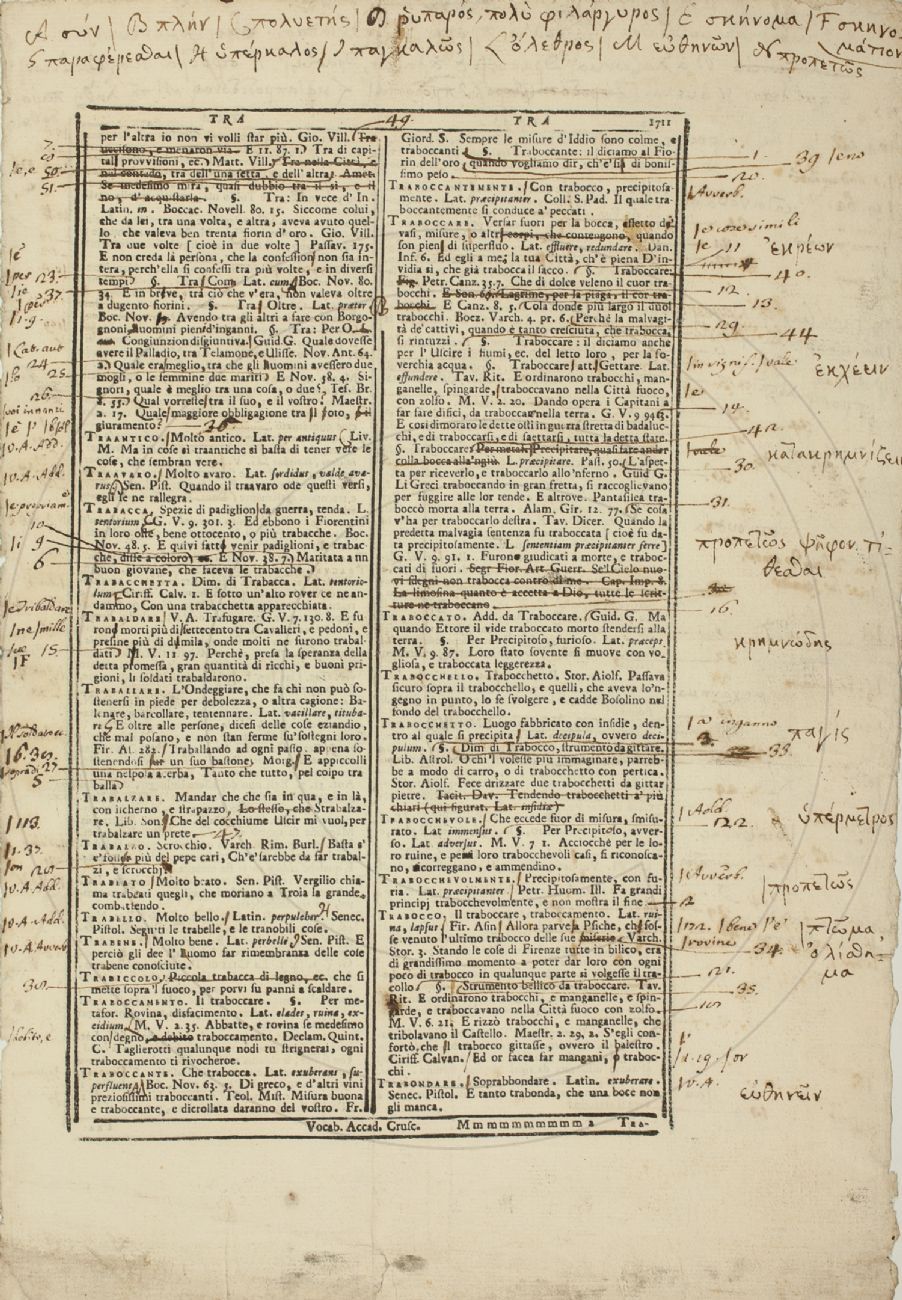 A σύν | B πλήν | C πολυετής | D ῥυπαρός, πολὺ φιλάργυρος | E σκήνομα | F σκηνομάτιον
G παραφέρεσθαι | H ὑπέρκαλος | I παγκαλῶς | L ὄλεθρος | M εὐθηνῶν | N προπετῶς
TRA 49 TRA 1711
per l'altra io non vi volli star più. Gio. Vill. Tra
uccisono, e menaron via. E 11. 87. 1. Tra di capi-
tali provvisioni, ec. Matt. Vill. Tra nella Città, e
nel contado, tra dell'una setta, e dell'altra. Amet.
Se medesimo mira, quasi dubbio tra il sì, e il
no, d'acquistarla. §. Tra: In vece d' In.
Latin. in. Boccac. Novell. 80. 15. Siccome colui,
che da lei, tra una volta, e altra, aveva avuto quel-
lo, che valeva ben trenta fiorin d'oro. Gio. Vill.
Tra due volte [cioè in due volte] Passav. 175.
E non creda la persona, che la confession non sia in-
tera, perch'ella si confessi tra più volte, e in diversi
tempi §. Tra: Com. Lat. cum. Boc. Nov. 80.
34. E in brève, tra ciò che v'era, non valeva oltre
a dugento fiorini. §. Tra: Oltre. Lat. præter
Boc. Nov. Avendo tra gli altri a fare con Borgo-
gnoni, uomini pieni d'inganni. §. Tra: Per O.
Congiunzion disgiuntiva. Guid. G. Quale dovesse
avere il Palladio, tra Telamone, e Ulisse. Nov. Ant. 64.
Quale era meglio, tra che gli uomini avessero due
mogli, o le femmine due mariti. E Nov. 38. 4. Si-
gnori, quale è meglio tra una cosa, o due? Tes. Br.
8. 55. Qual vorreste tra il suo, e il vostro? Maestr.
2. 17. Quale maggiore obbligagione tra il voto, o il
giuramento?
TRAANTICO. Molto antico. Lat. per antiquus. Liv.
M. Ma in cose sì traantiche si basta di tener vere le
cose, che sembran vere.
TRAAVARO. Molto avaro. Lat. sordidus, valde ava-
rus. Sen. Pist. Quando il traavaro ode questi versi,
egli se ne rallegra.
TRABACCA. Spezie di padiglion da guerra, tenda. L.
tentorium. G. V. 9. 301. 3. Ed ebbono i Fiorentini
in loro oste, bene ottocento, o più trabacche. Boc.
Nov. 48. 5. E quivi fatti venir padiglioni, e trabac-
che, disse a coloro, ec. E Nov. 38. 7. Maritata a un
buon giovane, che faceva le trabacche.
TRABACCHETTA. Dim. di Trabacca. Lat. tentorio-
lum. Ciriff. Calv. 1. E sotto un'alto rover ce ne an-
dammo, Con una trabacchetta apparecchiata.
TRABALDARE. V. A. Trafugare. G. V. 7. 130. 8. E fu-
rono morti più di settecento tra Cavalieri, e pedoni, e
presine più di dumila, onde molti ne furono trabal-
dati. M. V. 11. 97. Perchè, presa la speranza della
detta promessa, gran quantità di ricchi, e buoni pri-
gioni, li soldati trabaldarono.
TRABALLARE. L'Ondeggiare, che fa chi non può so-
stenersi in piede per debolezza, o altra cagione: Ba-
lenare, barcollare, tentennare. Lat. vacillare, tituba-
re. E oltre alle persone, dicesi delle cose eziandio,
che mal posano, e non stan ferme su' sostegni loro.
Fir. As. 282. Traballando ad ogni passo, appena so-
stenendosi sur un suo bastone. Morg. E appiccolli
una nespola acerba, Tanto che tutto, pel colpo tra
balla.
TRABALZARE. Mandar che che sia in qua, e in là,
con ischerno, e strapazzo, Lo stesso, che Strabalza-
re. Lib. Son. Che del cocchiume Ulcir mi vuol, per
trabalzare un prete. 47.
TRABALZO. Scrocchio. Varch. Rim. Burl. Basta s'
e' fosse più del pepe cari, Ch'e' sarebbe da far trabal-
zi, e scrocchi.
TRABEATO. Molto beato. Sen. Pist. Vergilio chia-
ma trabeati quegli, che moriano a Troia la grande,
combattendo.
TRABELLO. Molto bello. Latin. perpulcher. Senec.
Pistol. Seguiti le trabelle, e le tranobili cose.
TRABENE. Molto bene. Lat. perbelle. Sen. Pist. E
perciò gli dee l'uomo far rimembranza delle cose
trabene conosciute.
TRABICCOLO. Piccola trabacca di legno, ec. che si
mette sopra 'l fuoco, per porvi su panni a scaldare.
TRABOCCAMENTO. Il traboccare. §. Per me-
tafor. Rovina, disfacimento. Lat. clades, ruina, ex-
cidium. M. V. 2. 35. Abbatte, e rovina se medesimo
con degno, e debito traboccamento. Declam. Quint.
C. Taglierotti qualunque nodi tu strignerai, ogni
traboccamento ti rivocherοe.
TRABOCCANTE. Che trabocca. Lat. exuberans, su-
perfluens. Boc. Nov. 63. 5. Di greco, e d'altri vini
preziosissimi traboccanti. Teol. Mist. Misura buona
e traboccante, e dicrollata daranno del vostro. Fr.
Giord. S. Sempre le misure d'Iddio sono colme, e
traboccanti. §. Traboccante: il diciamo al Fio-
rin dell'oro, quando vogliamo dir, ch'e' sia di bonis-
simo peso.
TRABOCCANTEMENTE. Con trabocco, precipitosa-
mente. Lat. præcipitanter. Coll. S. Pad. Il quale tra-
boccantemente si conduce a' peccati.
TRABOCCARE. Versar fuori per la bocca, effetto de'
vasi, misure, o altri corpi, che contengono, quando
son pieni di superfluo. Lat. effluere, redundare. Dan.
Inf. 6. Ed egli a me, la tua Città, ch'è piena D'in-
vidia sì, che già trabocca il sacco. §. Traboccare:
Fig. Petr. Canz. 35. 7. Che di dolce veleno il cuor tra-
bocchi. E Son. 69. Lagrime, per la piaga, il cor tra-
bocchi. E Canz. 8. 5. Cola donde più largo il duol
trabocchi. Boez. Varch. 4. pr. 6. Perchè la malvagi-
tà de' cattivi, quando è tanto cresciuta, che trabocca,
si rintuzzi. §. Traboccare: il diciamo anche
per l'Uscire i fiumi, ec. del letto loro, per la so-
verchia acqua. §. Traboccare: att. Gettare. Lat.
effundere. Tav. Rit. E ordinarono trabocchi, man-
ganelle, spingarde, traboccavano nella Città fuoco,
con zolfo. M. V. 2. 20. Dando opera i Capitani a
far fare difici, da traboccar nella terra. G. V. 9. 94. 3.
E così dimorato le dette osti in guerra stretta di badaluc-
chi, e di traboccarsi, e di saettarsi, tutta la detta state.
§. Traboccare: Per metaf. Precipitare, quasi fare andar
colla bocca all'ingiù. L. præcipitare. Pass. 30. L'aspet-
ta per riceverlo, e traboccarlo allo 'nferno. Guid. G.
Li Greci traboccando in gran fretta, si raccoglievano
per fuggire alle lor tende. E altrove. Pantasilea tra-
boccò morta alla terra. Alam. Gir. 12. 77. Se cosa
v'ha per traboccarlo destra. Tav. Dicer. Quando la
predetta malvagia sentenza fu traboccata [cioè fu da-
ta precipitosamente. L. sententiam præcipitanter ferre]
G. V. 9. 91. 1. Furono giudicati a morte, e traboc-
cati di fuori. Segr. Fior. Art. Guerr. Se'l Cielo nuo-
vi sdegni non trabocca contro di me. Cap. Imp. 8.
La limosina quanto è accetta a Dio, tutte le scrit-
ture ne traboccano.
TRABOCCATO. Add. da Traboccare. Guid. G. Ma
quando Ettore il vide traboccato morto stendersi alla
terra. §. Per Precipitoso, furioso. Lat. præceps
M. V. 9. 87. Loro stato sovente si muove con vo-
gliosa, e traboccata leggerezza.
TRABOCCHELLO. Trabocchetto. Stor. Aiolf. Passava
sicuro sopra il trabocchello, e quelli, che aveva lo 'n-
gegno in punto, lo fe svolgere, e cadde Bosolino nel
fondo del trabocchello.
TRABOCCHETTO. Luogo fabbricato con insidie, den-
tro al quale si precipita. Lat. decipula, ovvero deci-
pulum. §. Dim. di Trabocco, strumento da gittare.
Lib. Astrol. O chi 'l volesse più immaginare, parreb-
be a modo di carro, o di trabocchetto con pertica.
Stor. Aiolf. Fece drizzare due trabocchetti da gittar
pietre. Tacit. Dav. Tendendo trabocchetti a' più
chiari (qui figurat. Lat. insidiæ)
TRABOCCHEVOLE. Che eccede fuor di misura, smisu-
rato. Lat. immensus. §. Per Precipitoso, avver-
so. Lat. adversus. M. V. 7. 1. Acciocchè per le lo-
ro ruine, e per i loro trabocchevoli casi, si riconosca-
no, o correggano, e ammendino.
TRABOCCHEVOLMENTE. Precipitosamente, con fu-
ria. Lat. præcipitanter. Petr. Huom. Ill. Fa grandi
principj trabocchevolmente, e non mostra il fine.
TRABOCCO. Il traboccare, traboccamento. Lat. rui-
na, lapsus. Fir. Asin. Allora parve a Psiche, che fos-
se venuto l'ultimo trabocco delle sue miserie. Varch.
Stor. 3. Stando le cose di Firenze tutte in bilico, era
di grandissimo momento a poter dar loro con ogni
poco di trabocco in qualunque parte si volgesse il tra-
collo. §. Strumento bellico da traboccare. Tav.
Rit. E ordinarono trabocchi, e manganelle, e spin-
garde, e traboccavano nella Città fuoco con zolfo.
M. V. 6. 21. E rizzò trabocchi, e manganelle, che
tribolavano il Castello. Maestr. 2. 29. S'egli con-
fortò, che il trabocco gittasse, ovvero il palestro.
Ciriff. Calvan. Ed or facea far mangani, o traboc-
chi.
TRABONDARE. Soprabbondare. Latin. exuberare.
Senec. Pistol. E tanto trabonda, che una boce non
gli manca.
Vocab. Accad. Crusc. M m m m m m m m m m 2 TRA-
50.
51.
23.
37.
24
25
26
10
9
6
15
1113.
30.
1 39
20.
Avverb.
11 ἐκρέων
40.
12.
13.
29. 44
ἐκχέειν
14.
42.
κατακρημνίζειν
30.
31.
προπετῶς ψῆφον τί-
θεσθαι
16.
κρημνώδης
inganno
παγίς
33.
122. ὑπέρμετρος
Avverb.
προπετῶς
2
πτῶμα
rovine 34. ὀλίσθη-
μα
21.
35.
V. A.
εὐθηνεῖν